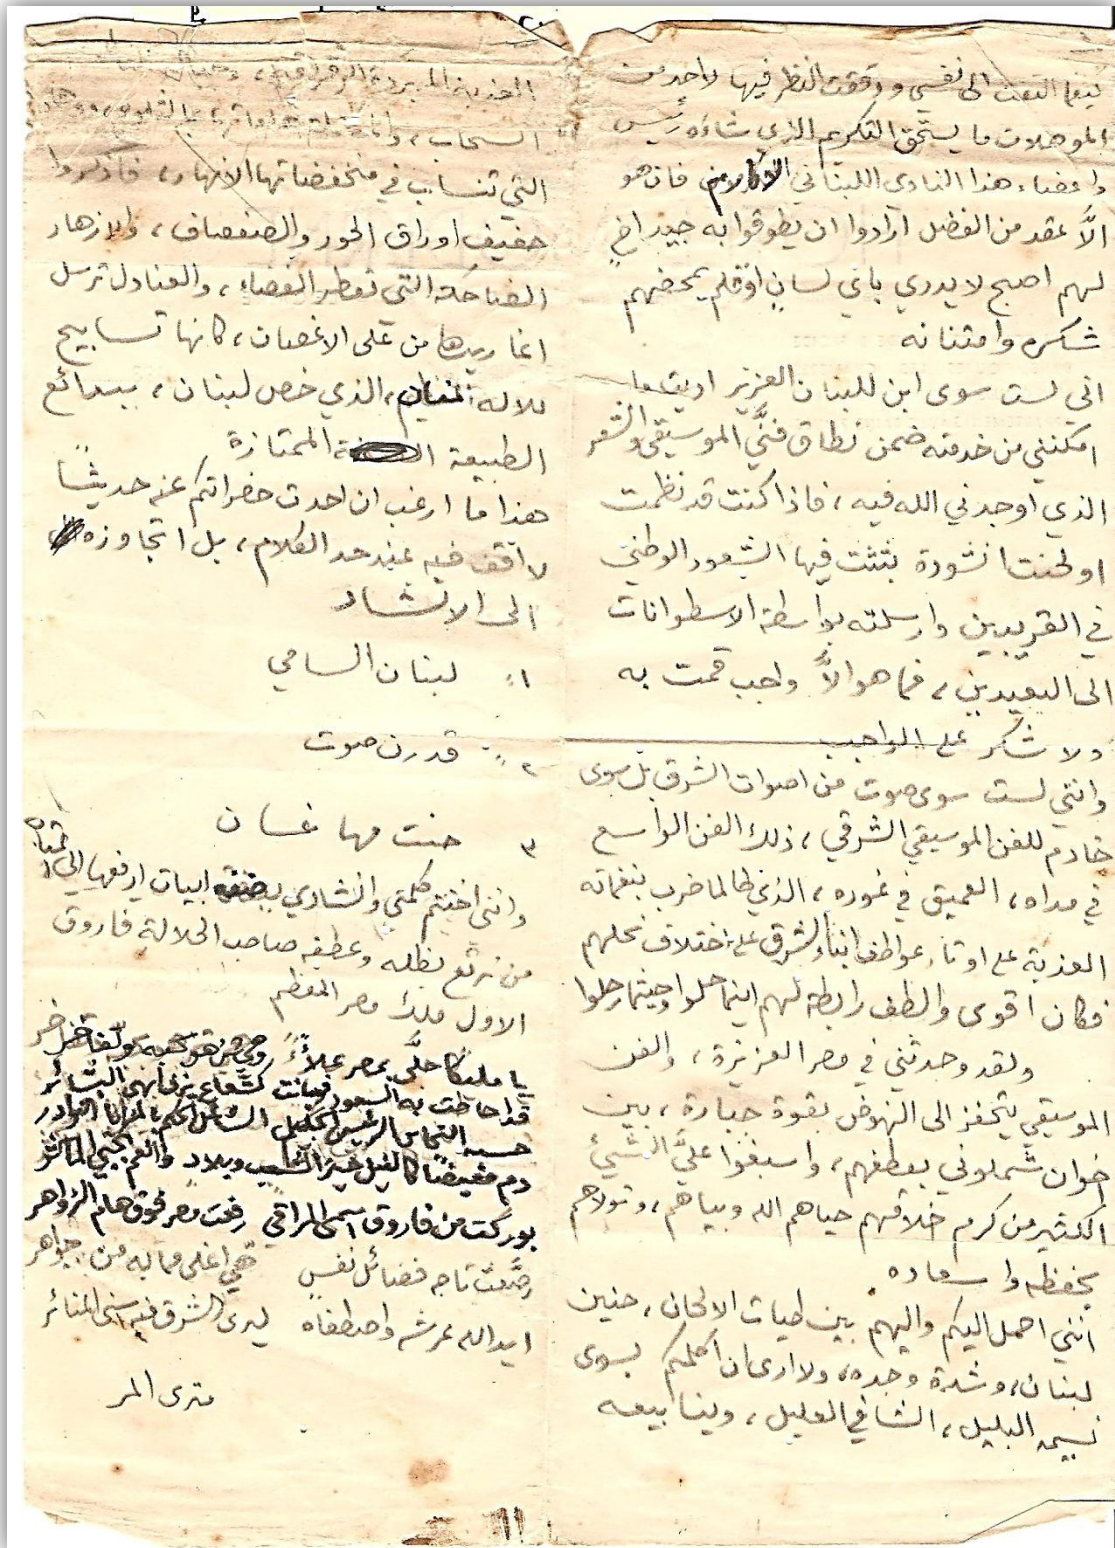 كيفما التفت الى نفسي ودققت النظر فيها لا اجد من
المؤهلات ما يستحق التكريم الذي شاءه رئيس
واعضاء هذا النادي اللبناني الاكارم، فان هو
الاَّ عقد من الفضل ارادوا ان يطوقوا به جيد اخٍ
لهم اصبح لا يدري باي لسانٍ او قلم يمحضهم
شكره وامتنانه
اني لست سوى ابن للبنان العزيز اديت ما
امكنني من خدمته ضمن نطاق فنَّي الموسيقى والشعر
الذي اوجدني الله فيه، فاذا كنت قد نظمت
او لحنت انشودة بثثت فيها الشعور الوطني
في القريبين وارسلته بواسطة الاسطوانات
الى البعيدين، فما هو الاَّ واجب قمت به
ولا شكر على الواجب
وانني لست سوى صوت من اصوات الشرق بل سوى
خادم للفن الموسيقي الشرقي، ذلك الفن الواسع
في مداه، العميق في غوره، الذي طالما ضرب بنغماته
العذبة على اوتار عواطف ابناء الشرق على اختلاف نحلهم
فكان اقوى والطف رابطة لهم اينما حلوا وحيثما رحلوا
ولقد وجدتني في مصر العزيزة، والفن
الموسيقي يتحفز الى النهوض بقوة جبارة، بين
اخوان شملوني بعطفهم، واسبغوا عليَّ الشيئ
الكثير من كرم اخلاقهم حياهم الله وبياهم، وتولاهم
بحفظه واسعاده
انني احمل اليكم واليهم بين طيات الالحان، حنين
لبنان، وشدة وجده، ولا ارى ان اكلمكم بسوى
نسيمه البليل، الشافي العليل، وينابيعه
العذبة المبردة الرقراقة،
السحاب، بالثلوج، ووهاده
التي تنساب في منخفضاتها الانهار، فاذكروا
حفيف اوراق الحور والصفصاف، والازهار
الضاحكة التي تعطر الفضاء، والعنادل ترسل
اغاريدها من على الاغصان، كانها تسابيح
للاله الذي خص لبنان، ببدائع
الطبيعة الممتازة
هذا ما ارغب ان احدث حضراتكم عنه حديثًا
لا اقف فيه عند حد الكلام، بل اتجاوزه
الى الانشاد
١ً لبنان السامي
٢ً قدرن صوت
٣ حنت مها غسان
وانني اختتم كلمتي وانشادي ببضعة ابيات ارفعها الى
من نرتع بظله وعطفه صاحب الجلالة فاروق
الاول ملك مصر المعظم
يا مليكا حلَّى بمصر علاءً
قد احاطت به السعود فبانت كشعاع يزف ابهى البشائر
دم مفيضًا كالنيل والعم
بوركت من فاروق اسمى المراقي رفعت مصر فوق هام الزواهر
رصَّعت تاجه فضائل نفسٍ هي اغلى مما به من جواهر
ايد الله عرشه واصطفاه ليرى الشرق فيه اسنى المنائر
متري المر